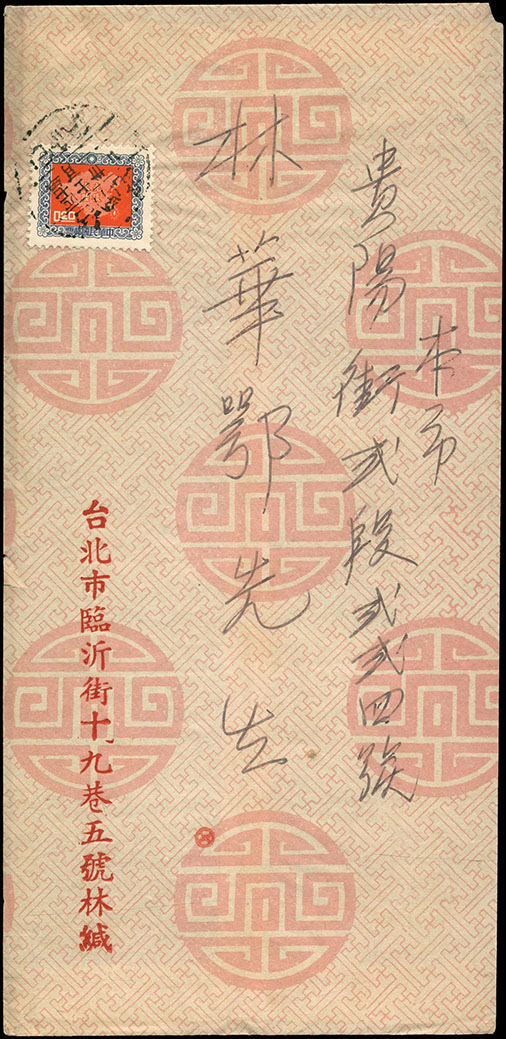 本市
貴陽街弍段弍弍四號
林華鄂先生
台北市臨沂街十九巷五號林緘
020